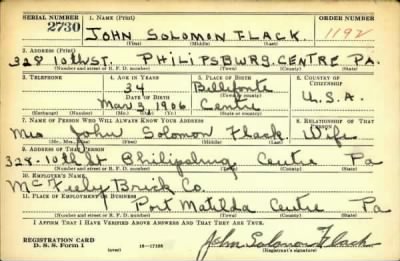 SERIAL NUMBER 1. NAME (Print) ORDER NUMBER
2730 JOHN SOLOMON FLACK 1192
(First) (Middle) (Last)
2. ADDRESS (Print)
328 10th ST. PHILIPSBURG. CENTRE PA.
(Number and street or R. F. D. number) (Town) (County) (State)
3. TELEPHONE 4. AGE IN YEARS 5. PLACE OF BIRTH 6. COUNTRY OF CITIZENSHIP
34 Bellifonte
DATE OF BIRTH (Town or county)
Mar 3, 1906 Centre U.S.A.
(Exchange) (Number) (Mo.) (Day) (Yr.) (State or country)
7. NAME OF PERSON WHO WILL ALWAYS KNOW YOUR ADDRESS 8. RELATIONSHIP OF THAT PERSON
Mrs John Solomon Flack. Wife
(Mr., Mrs., Miss) (First) (Middle) (Last)
9. ADDRESS OF THAT PERSON
328-10th St Philipsburg Centre Pa
(Number and street or R. F. D. number) (Town) (County) (State)
10. EMPLOYER'S NAME
McFeely Brick Co.
11. PLACE OF EMPLOYMENT OR BUSINESS
Port Matilda Centre Pa
(Number and street or R. F. D. number) (Town) (County) (State)
I AFFIRM THAT I HAVE VERIFIED ABOVE ANSWERS AND THAT THEY ARE TRUE.
REGISTRATION CARD
D. S. S. Form 1 16-17105 John Solomon Flack
(Registrant's signature)